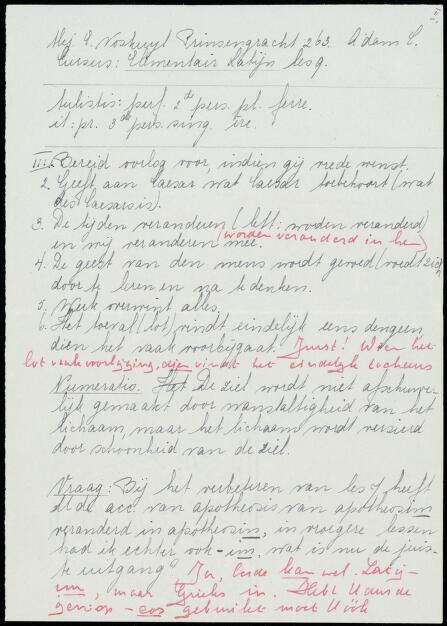 Mej E. Voskuyl Prinsengracht 263. A'dam C.
Cursus: Elementair Latijn les 9.
Tulistis: perf. 2de pers. pl. ferre.
it: pr. 3de pers. sing. ire.
III 1. Bereid oorlog voor, indien gij vrede wenst.
2. Geeft aan Caesar wat Caesar toebehoort (wat
des Caesars is).
3. De tijden veranderen (lett: worden veranderd)
en wij veranderen mee. (worden veranderd in hen)
4. De geest van den mens wordt gevoed (voedt zich)
door te leren en na te denken.
5. Werk overwint alles.
6. Het toeval (lot) vindt eindelijk eens dengeen
dien het vaak voorbijgaat. Juist! Wien het
lot vaak voorbijging, dien vindt het eindelijk toch eens
Numeratio. De ziel wordt niet afschuwe-
lijk gemaakt door wanstaltigheid van het
lichaam, maar het lichaam wordt versierd
door schoonheid van de ziel.
Vraag: Bij het verbeteren van les 7 heeft
U de acc. van apotheosis van apotheosim
veranderd in apotheosin, in vroegere lessen
had ik echter ook -im, wat is nu de juis-
te uitgang? Ja, beide kan wel. Latijn
im, maar Grieks in. Hebt U aan de
genitivus -eos gebruikt moet U ook